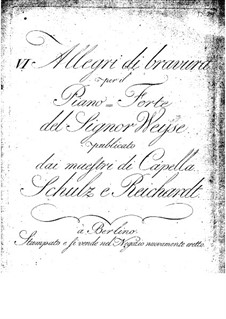 VI Allegri di bravura
per il
Piano = Forte
del Signor Weyse
publicato
dai maestri di Capella
Schulz e Reichardt
à Berlino
Stampato e si vende nel Negozio nuovamente eretto